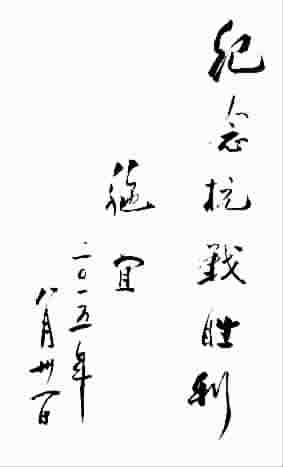 纪念抗战胜利
宜
二〇一五年
八月卅一日